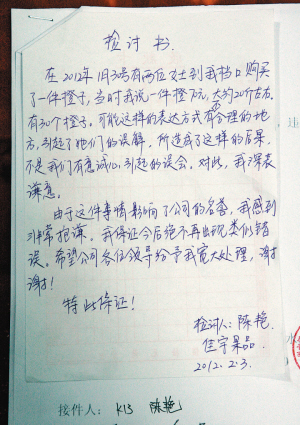 检讨书.
在2012年1月30号有两位女士到我档口购买
了一件橙子,当时我说一件橙 元,大约20斤左右,
有30个橙子。可能这样的表达方式有不合理的地
方,引起了她们的误解,所造成了这样的后果,
不是我们有意诚心引起的误会。对此,我深表
谦意。
由于这件事情影响了公司的名誉,我感到
非常抱谦。我保证今后绝不再出现类似错
误。希望公司各位领导给予我宽大处理,谢
谢!
特此保证!
检讨人:陈艳.
佳宇果品.
2012.2.3.
接件人: K13 陈艳